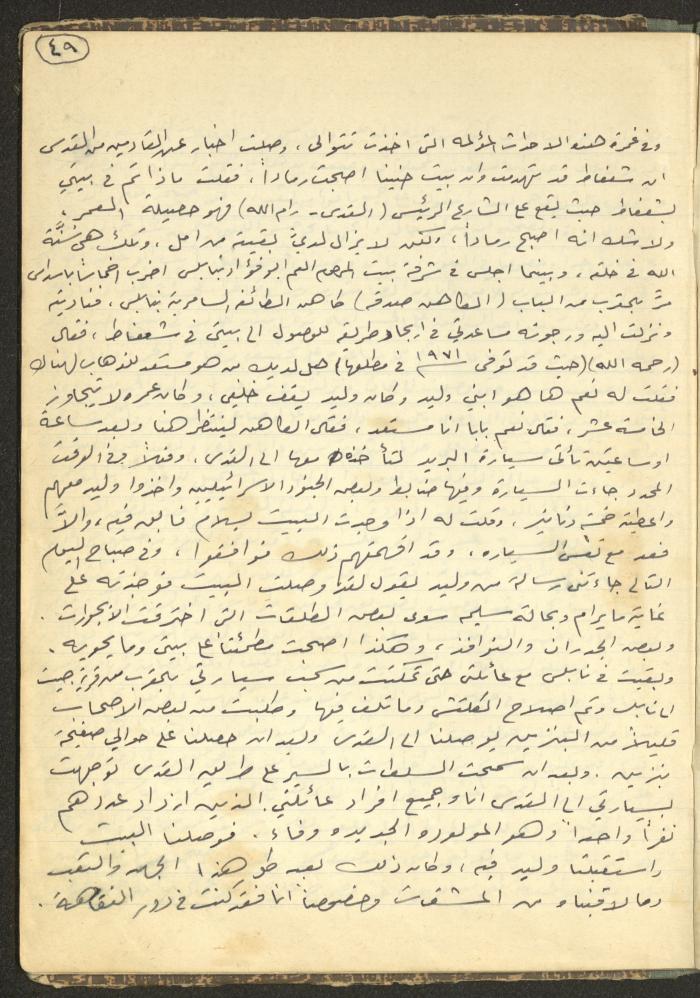 ٤٩
وفي غمرة هذه الاحداث المؤلمة التي اخذت تتوالى، وصلت اخبار عن القادمين من القدس
ان شعفاط قد تهدمت وان بيت حنينا اصبحت رماداً، فقلت ماذا تم في بيتي
بشعفاط حيث يقع على الشارع الرئيسي (القدس - رام الله) فهو حصيلة العمر،
ولا شك انه اصبح رماداً، ولكن لا يزال لديّ بقية من امل، وتلك هي سُنَّة
الله في خلقه، وبينما اجلس في شرفة بيت المرحوم العم ابو فؤاد بنابلس اضرب اخماساً باسداس
مرَّ بالقرب من الباب (الكاهن صدقة) كاهن الطائفة السامرية بنابلس، فناديته
ونزلت اليه ورجوته مساعدتي في ايجاد طريقة للوصول الى بيتي في شعفاط، فقال
(رحمه الله) (حيث قد توفى ١٩٧١ في مطلعها) هل لديك من هو مستعد للذهاب لهناك
فقلت له نعم ها هو ابني وليد وكان وليد يقف خلفي، وكان عمره لا يتجاوز
الخامسة عشر، فقال نعم بابا انا مستعد، فقال الكاهن لينتظر هنا وبعد ساعة
او ساعتين تأتي سيارة البريد لتأخذه معها الى القدس، وفعلاً وفي الوقت
المحدد جاءت السيارة وفيها ضابط وبعض الجنود الاسرائيليين واخذوا وليد معهم
واعطيته خمسة دنانير، وقلت له اذا وجدت البيت بسلام فابق فيه، والاَّ
فعد مع نفس السياره، وقد افهمتهم ذلك فوافقوا، وفي صباح اليوم
التالي جاءتني رسالة من وليد يقول لقد وصلت البيت فوجدته على
غاية ما يرام وبحالة سليمه سوى بعض الطلقات التي اخترقت الابجورات
وبعض الجدران والنوافذ، وهكذا اصبحت مطمئناً على بيتي وما يحويه.
وبقيت في نابلس مع عائلتي حتى تمكنت من سحب سيارتي بالقرب من قرية جيت
الى نابلس وتم اصلاح الكلتش وما تلف فيها وطلبت من بعض الاصحاب
قليلاً من البنزين يوصلنا الى القدس وبعد ان حصلنا على حوالي صفيحة
بنزين. وبعد ان سمحت السلطات بالسير على طريق القدس توجهت
بسيارتي الى القدس انا وجميع افراد عائلتي الذين ازداد عددهم
نفراً واحداً وهو المولوده الجديده وفاء. فوصلنا البيت
واستقبلنا وليد فيه، وكان ذلك بعد كل هذا الجهد والتعب
وما لاقيناه من المشقات وخصوصاً انا فقد كنت في دور النقاهة.